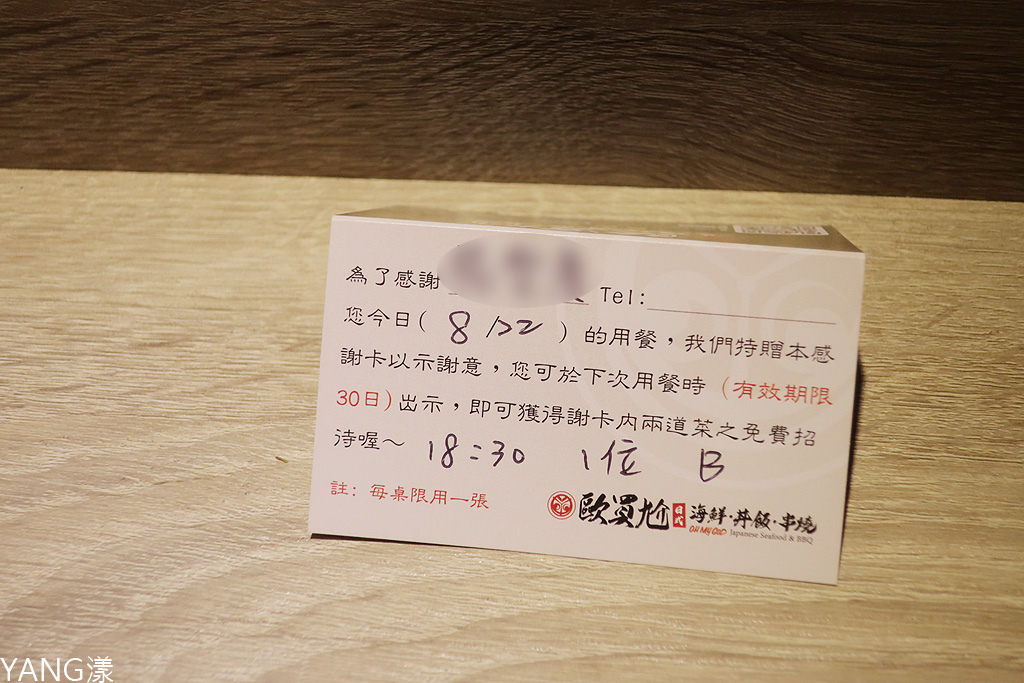 為了感謝 Tel:
您今日( 8/22 )的用餐，我們特贈本感
謝卡以示謝意，您可於下次用餐時（有效期限
30日)出示，即可獲得謝卡內兩道菜之免費招
待喔～ 18:30 1位 B
註: 每桌限用一張
歐買尬 日式 海鮮·丼飯·串燒
OH MY GOD Japanese Seafood & BBQ
YANG漾